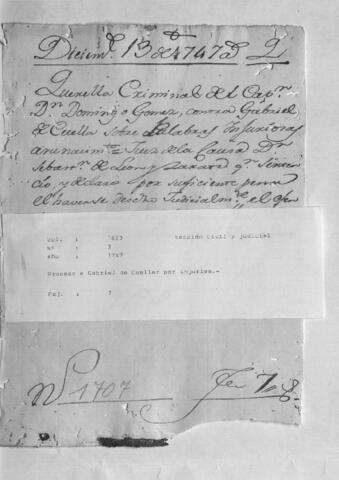 Diciem.e 13 de 1747 a.s 2
Querella Criminal del Cap.n
D.n Domingo Gomez, contra Gabriel
de Cuella sobre Palabras Injuriosas
Juez de la Causa D.n
Sebas.n de Leon y Zarate q.n Senten
cio, y declaro por suficiente pena
el haverse desdho Judicialm.te el ofen
Vol. : 1623 Sección Civil y Judicial
Nº : 3
Año : 1747
Proceso a Gabriel de Cuellar por injurias.-
Foj. : 7
Nº 1707
7